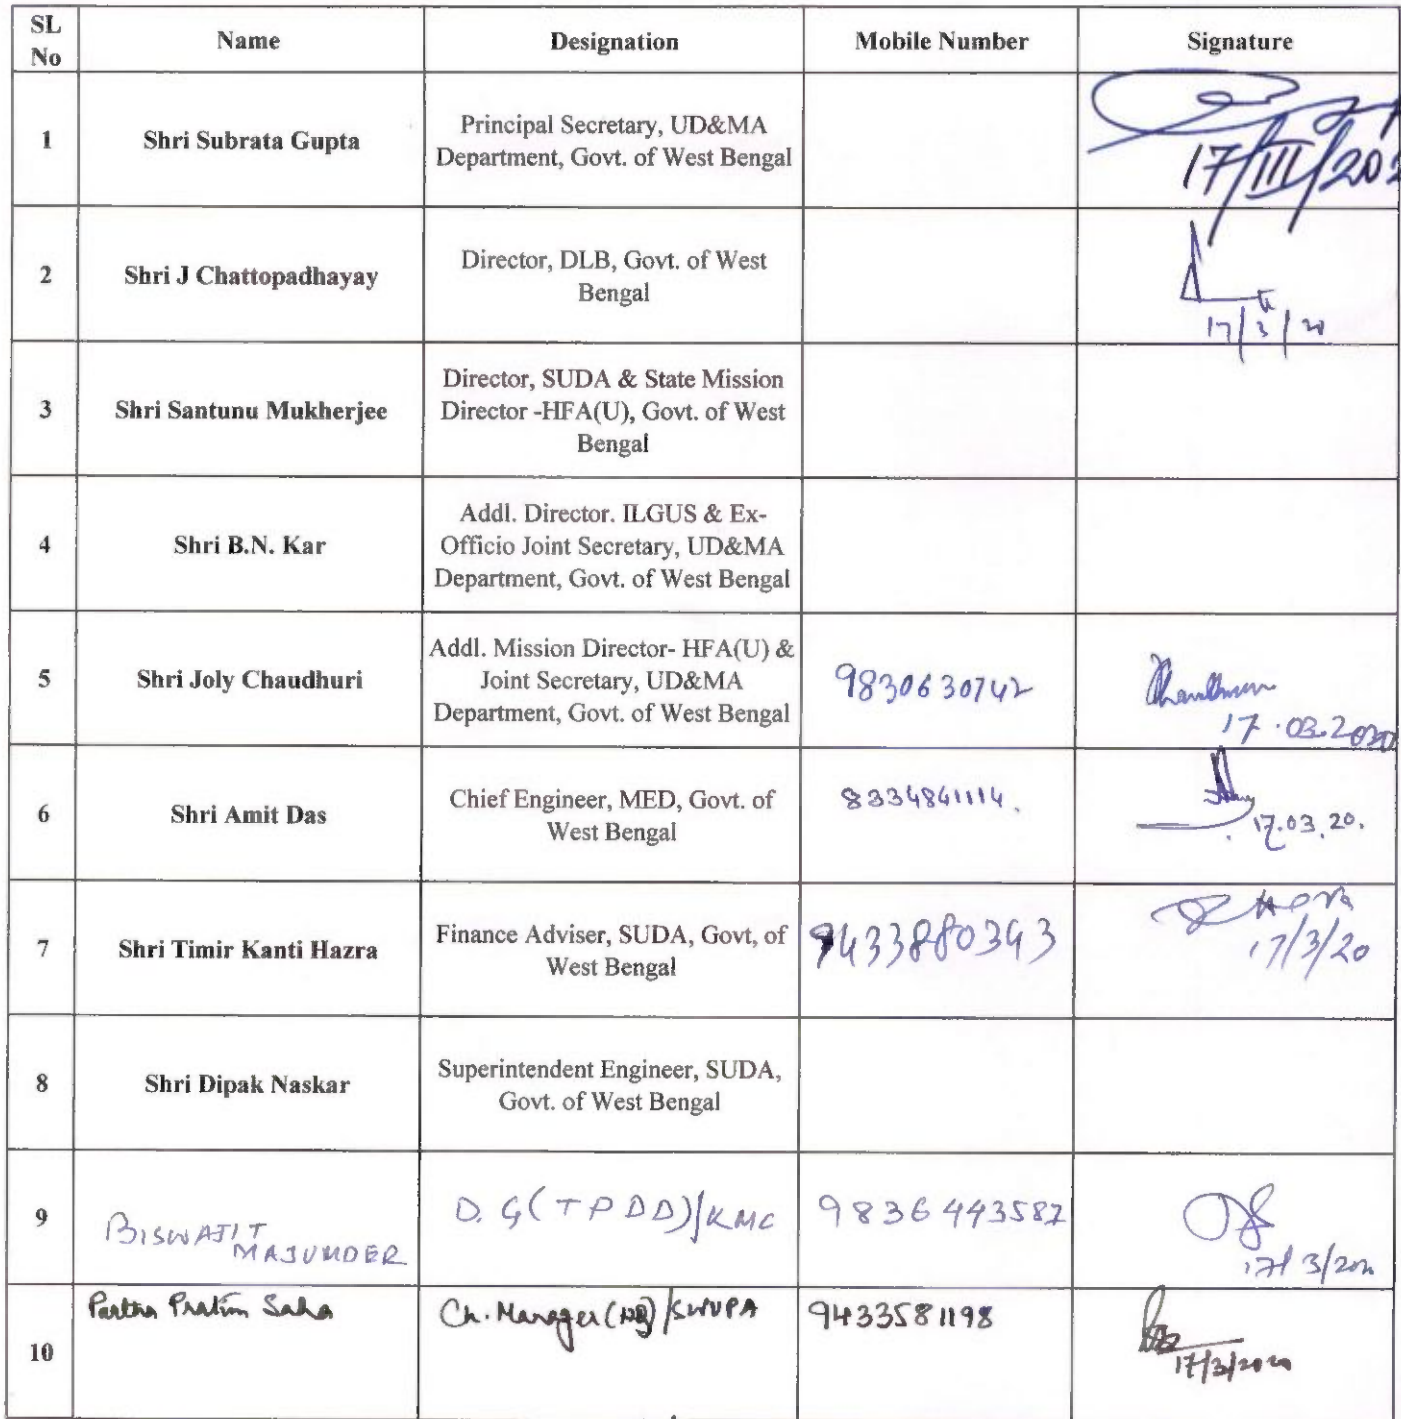 SL No Name Designation Mobile Number Signature
1 Shri Subrata Gupta Principal Secretary, UD&MA
Department, Govt. of West Bengal
17/III/202
2 Shri J Chattopadhayay Director, DLB, Govt. of West
Bengal
17/3/20
3 Shri Santunu Mukherjee Director, SUDA & State Mission
Director -HFA(U), Govt. of West
Bengal
4 Shri B.N. Kar Addl. Director. ILGUS & Ex-
Officio Joint Secretary, UD&MA
Department, Govt. of West Bengal
5 Shri Joly Chaudhuri Addl. Mission Director- HFA(U) &
Joint Secretary, UD&MA
Department, Govt. of West Bengal
9830630742
17.03.2020
6 Shri Amit Das Chief Engineer, MED, Govt. of
West Bengal
8334841114.
17.03.20.
7 Shri Timir Kanti Hazra Finance Adviser, SUDA, Govt, of
West Bengal
9433880343
17/3/20
8 Shri Dipak Naskar Superintendent Engineer, SUDA,
Govt. of West Bengal
9 BISWAJIT
MAJUMDER
D.G(TPDD)/KMC 9836443587
17/3/20
10 Partha Pratim Saha Ch. Manager 9433581198
17/3/2020